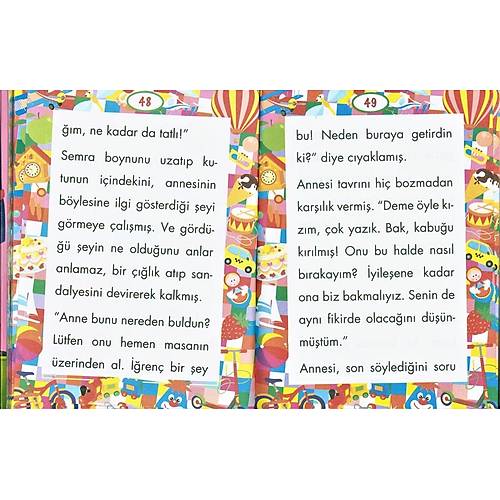 48
ğım, ne kadar da tatlı!”
Semra boynunu uzatıp ku-
tunun içindekini, annesinin
böylesine ilgi gösterdiği şeyi
görmeye çalışmış. Ve gördü-
ğü şeyin ne olduğunu anlar
anlamaz, bir çığlık atıp san-
dalyesini devirerek kalkmış.
“Anne bunu nereden buldun?
Lütfen onu hemen masanın
üzerinden al. İğrenç bir şey
49
bu! Neden buraya getirdin
ki?” diye cıyaklamış.
Annesi tavrını hiç bozmadan
karşılık vermiş. “Deme öyle kı-
zım, çok yazık. Bak, kabuğu
kırılmış! Onu bu halde nasıl
bırakayım? İyileşene kadar
ona biz bakmalıyız. Senin de
aynı fikirde olacağını düşün-
müştüm.”
Annesi, son söylediğini soru